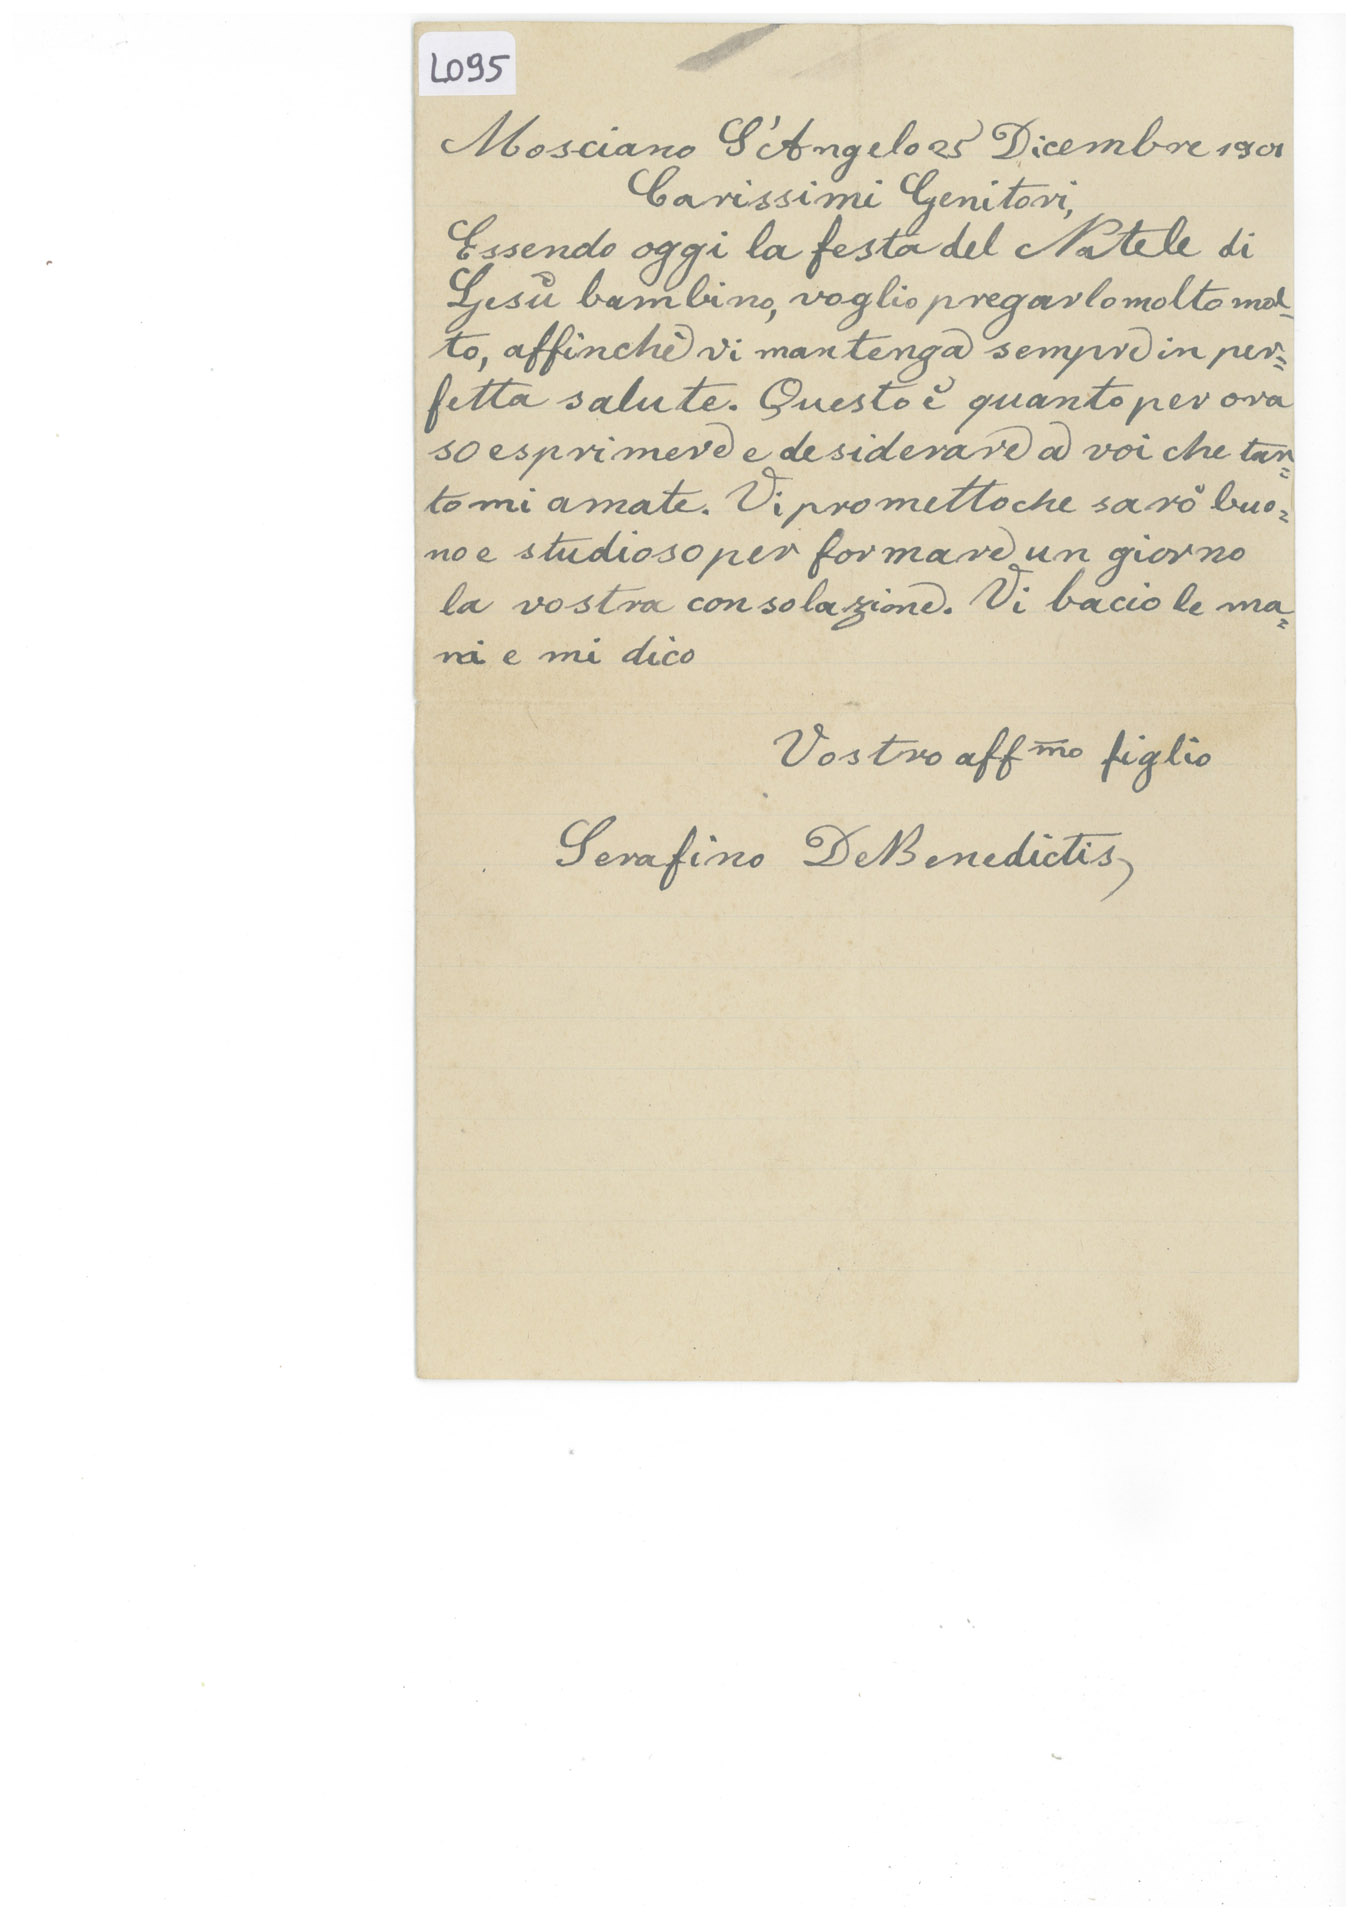 L095
Mosciano S'Angelo 25 Dicembre 1901
Carissimi Genitori,
Essendo oggi la festa del Natele di
Gesù bambino, voglio pregarlo molto mol-
to, affinchè vi mantenga sempre in per=
fetta salute. Questo è quanto per ora
so esprimere e desiderare a voi che tan=
to mi amate. Vi prometto che sarò buo=
no e studioso per formare un giorno
la vostra consolazione. Vi bacio le ma=
ni e mi dico
Vostro affmo figlio
Serafino DeBenedictis